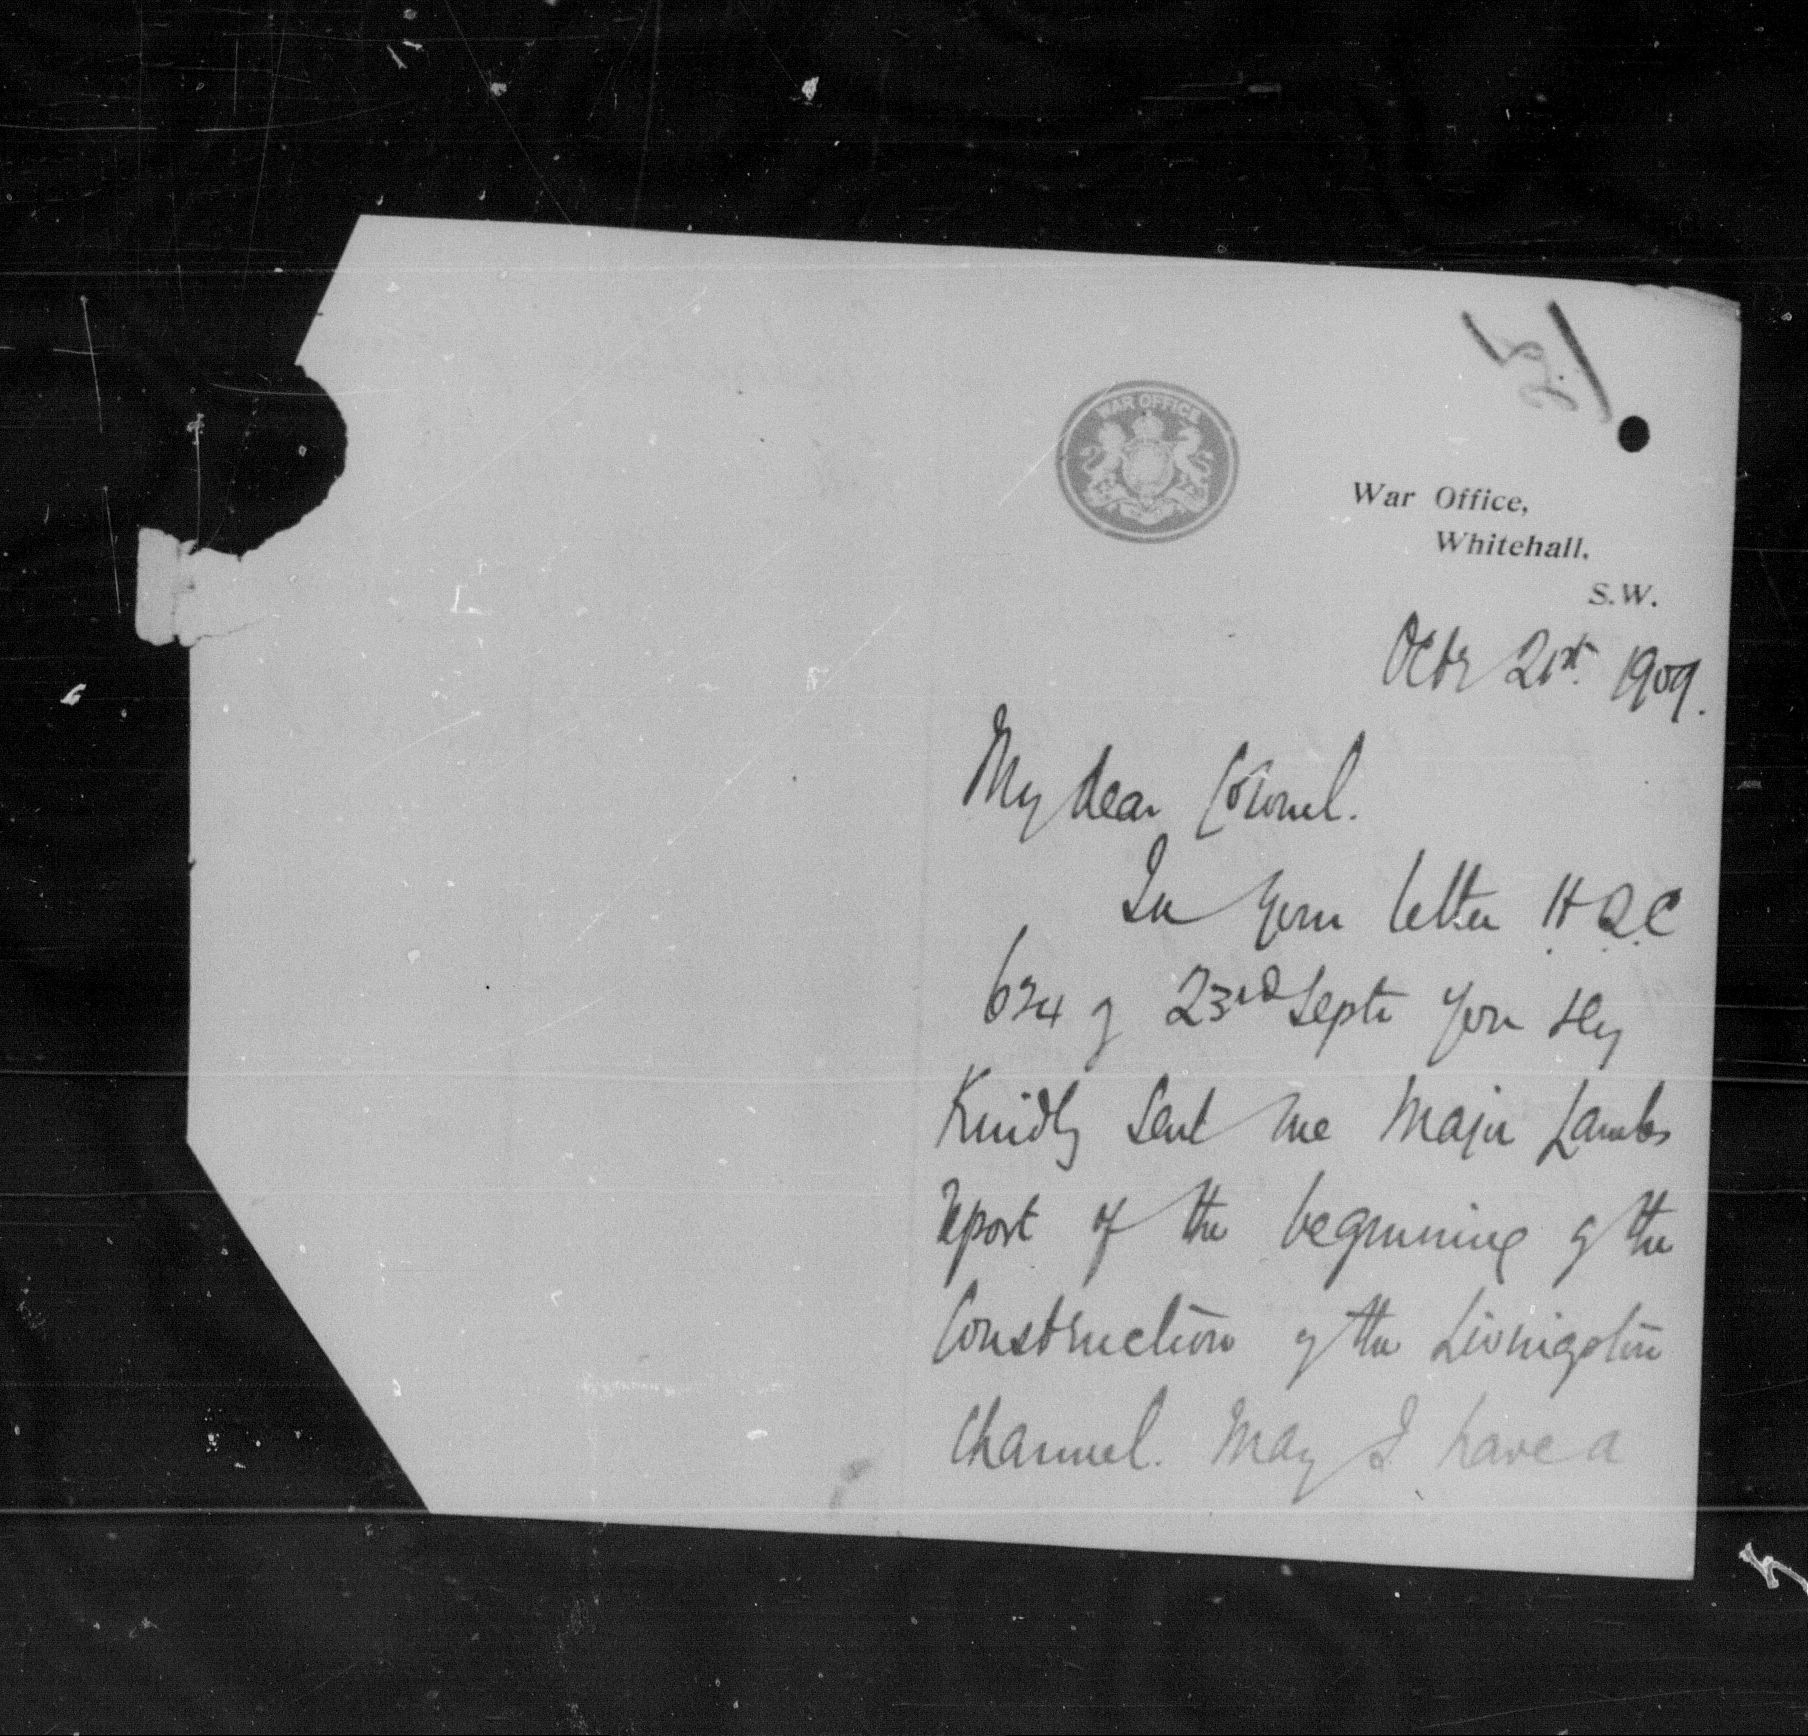 WAR OFFICE
War Office,
Whitehall,
S.W.
Octr 21st. 1909.
My dear Colonel.
In your letter H.Q.C
634 of 23rd Septr you very
Kindly sent me Major Lambs
report of the beginning of the
Construction of the Livingston
Channel. May I have a